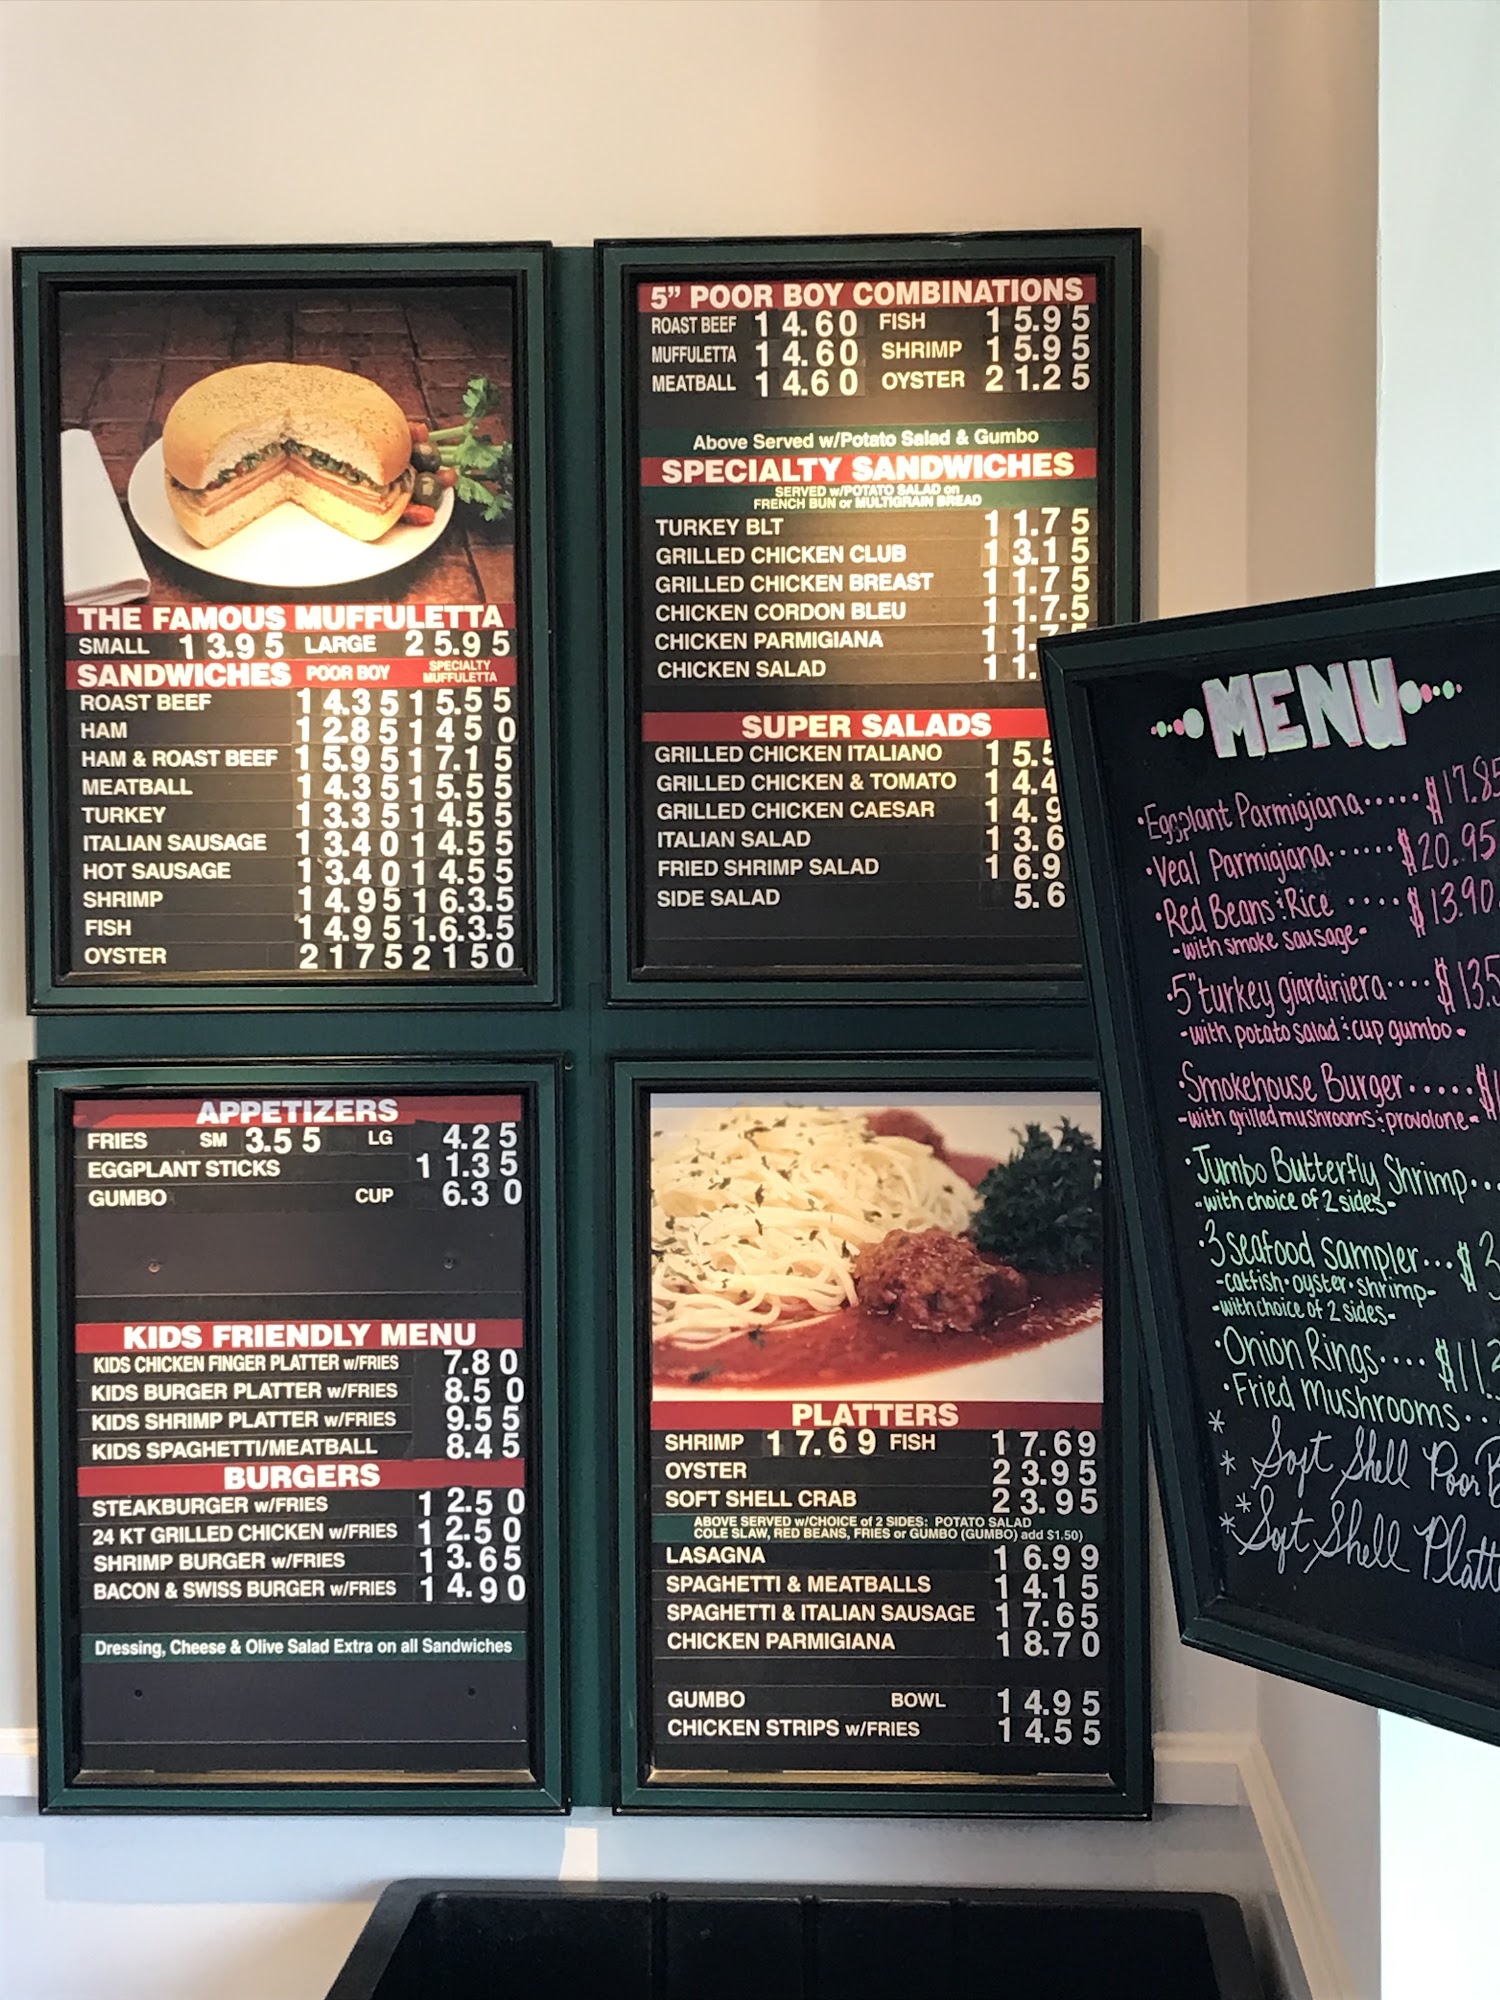 THE FAMOUS MUFFULETTA
SMALL 13.95 LARGE 25.95
SANDWICHES POOR BOY SPECIALTY MUFFULETTA
ROAST BEEF 14.35 15.55
HAM 12.85 145 0
HAM & ROAST BEEF 15.95 17.15
MEATBALL 14.35 15.55
TURKEY 13.35 14.55
ITALIAN SAUSAGE 13.40 14.55
HOT SAUSAGE 13.40 14.55
SHRIMP 14.95 16.3.5
FISH 14.95 1.6.3.5
OYSTER 2175 2150
5” POOR BOY COMBINATIONS
ROAST BEEF 14.60 FISH 15.95
MUFFULETTA 14.60 SHRIMP 15.95
MEATBALL 14.60 OYSTER 21.25
Above Served w/Potato Salad & Gumbo
SPECIALTY SANDWICHES
SERVED w/POTATO SALAD on
FRENCH BUN or MULTIGRAIN BREAD
TURKEY BLT 11.75
GRILLED CHICKEN CLUB 13.15
GRILLED CHICKEN BREAST 11.75
CHICKEN CORDON BLEU 11.7.5
CHICKEN PARMIGIANA 11.7
CHICKEN SALAD 11.
SUPER SALADS
GRILLED CHICKEN ITALIANO 15.5
GRILLED CHICKEN & TOMATO 14.4
GRILLED CHICKEN CAESAR 14.9
ITALIAN SALAD 13.6
FRIED SHRIMP SALAD 16.9
SIDE SALAD 5.6
APPETIZERS
FRIES SM 3.55 LG 4.25
EGGPLANT STICKS 11.35
GUMBO CUP 6.30
KIDS FRIENDLY MENU
KIDS CHICKEN FINGER PLATTER w/FRIES 7.80
KIDS BURGER PLATTER w/FRIES 8.50
KIDS SHRIMP PLATTER w/FRIES 9.55
KIDS SPAGHETTI/MEATBALL 8.45
BURGERS
STEAKBURGER w/FRIES 12.50
24 KT GRILLED CHICKEN w/FRIES 12.50
SHRIMP BURGER w/FRIES 13.65
BACON & SWISS BURGER w/FRIES 14.90
Dressing, Cheese & Olive Salad Extra on all Sandwiches
PLATTERS
SHRIMP 17.69 FISH 17.69
OYSTER 23.95
SOFT SHELL CRAB 23.95
ABOVE SERVED w/CHOICE of 2 SIDES: POTATO SALAD
COLE SLAW, RED BEANS, FRIES or GUMBO (GUMBO) add $1.50)
LASAGNA 16.99
SPAGHETTI & MEATBALLS 14.15
SPAGHETTI & ITALIAN SAUSAGE 17.65
CHICKEN PARMIGIANA 18.70
GUMBO BOWL 14.95
CHICKEN STRIPS w/FRIES 14.55
MENU
•Eggplant Parmigiana..... $17.85
•Veal Parmigiana...... $20.95
•Red Beans & Rice .... $13.90
-with smoke sausage-
•5" turkey giardiniera.... $13.5
-with potato salad & cup gumbo-
•Smokehouse Burger..... $1
-with grilled mushrooms & provolone-
•Jumbo Butterfly Shrimp...
-with choice of 2 sides-
•3 Seafood Sampler... $3
-catfish•oyster•shrimp-
-with choice of 2 sides-
•Onion Rings.... $11.2
•Fried Mushrooms...
* Soft Shell Poor B
* Soft Shell Platt